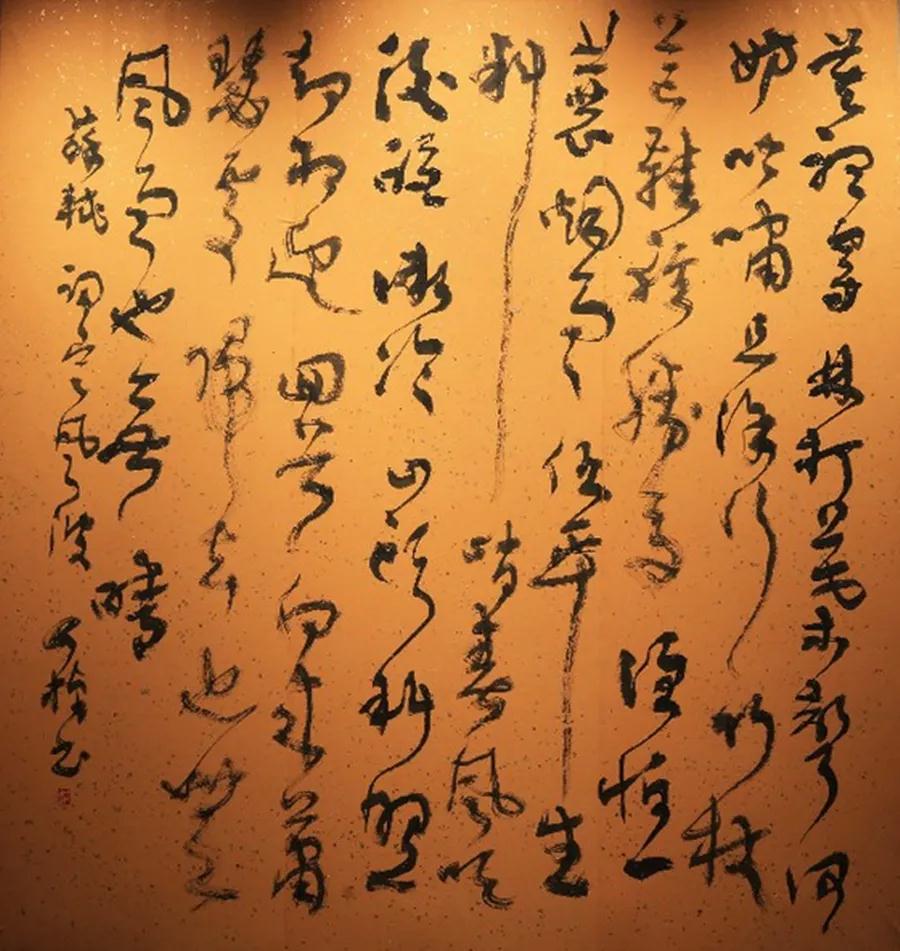 莫聽穿林打葉聲何
妨吟嘯且徐行竹杖
芒鞋輕勝馬誰怕一
蓑烟雨任平生
料峭春風吹
酒醒微冷山頭斜照
却相迎回首向來蕭
瑟處歸去也無
風雨也無晴
蘇軾詞定風波书